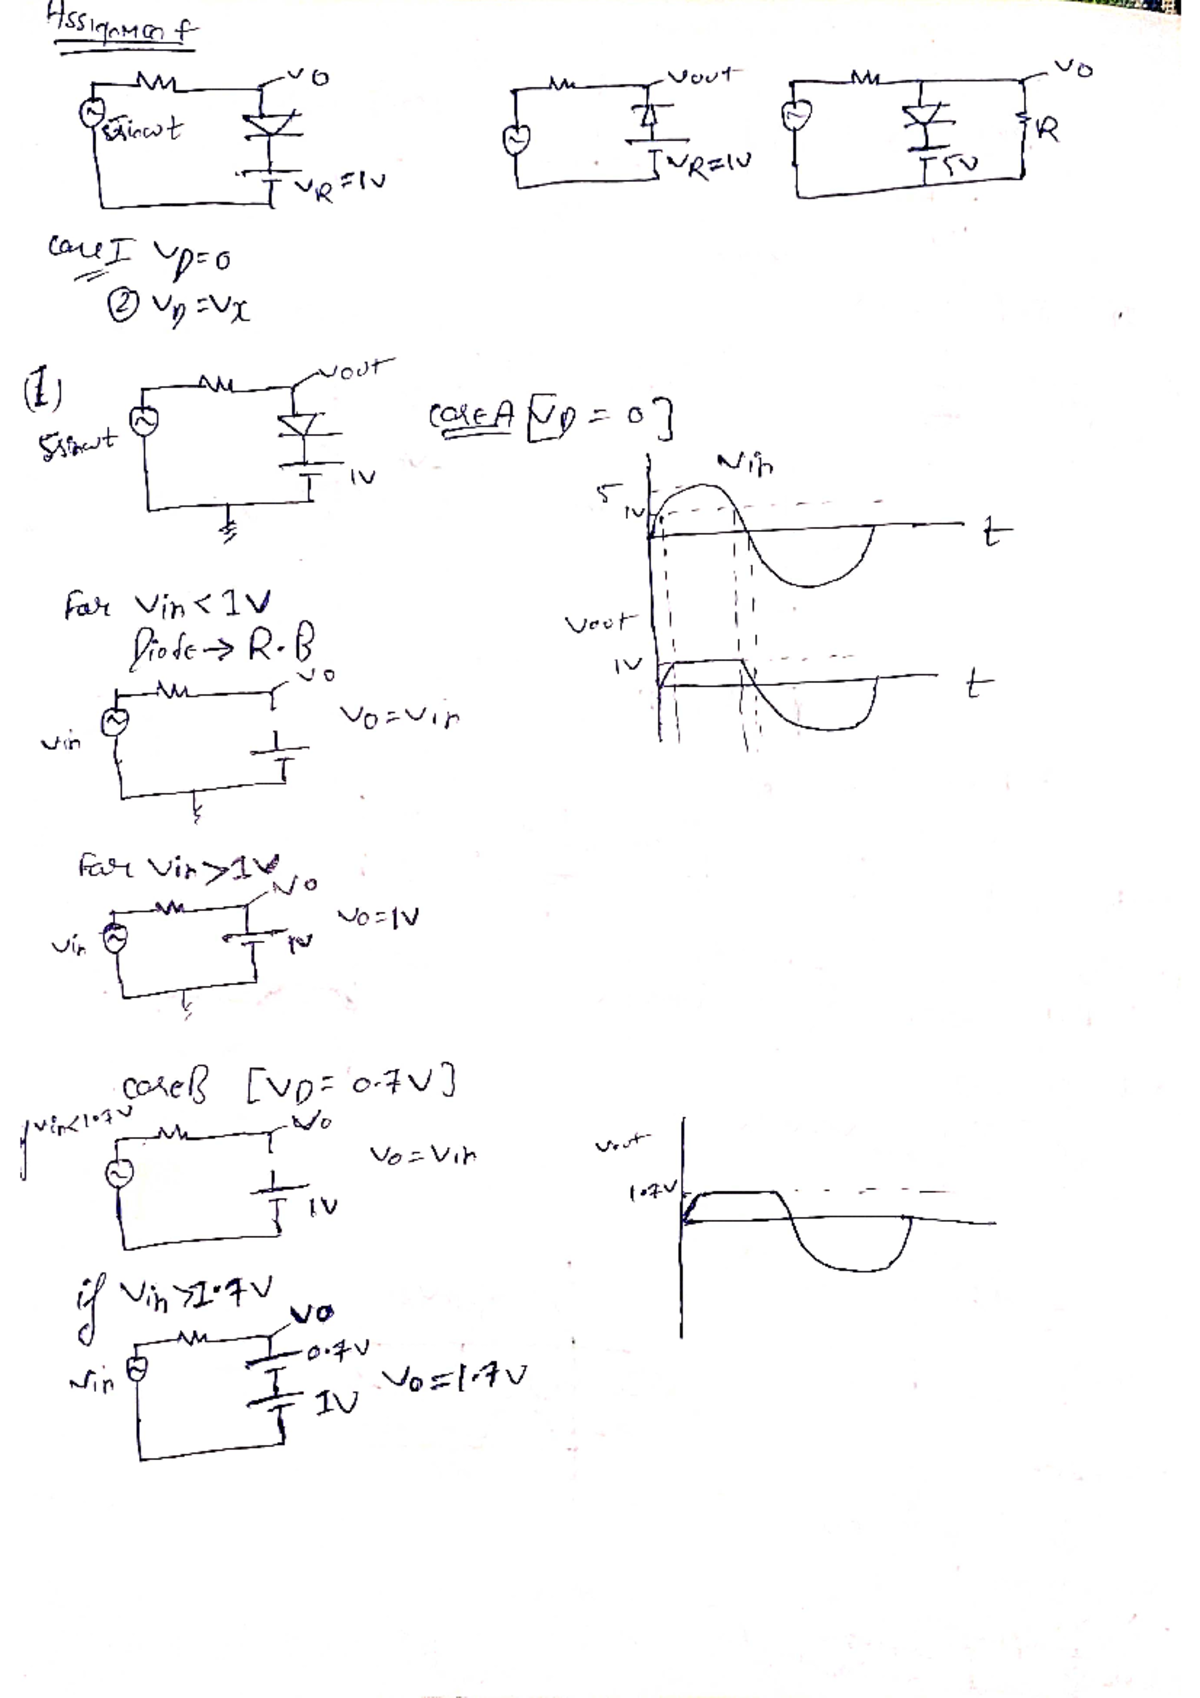 Assignment
Vo
5sinwt
VR=1V
Vout
VR=1V
Vo
5V
R
Case I VD=0
② VD=Vx
(1)
Vout
5sinwt
1V
Case A [VD = 0]
Vin
5
1V
t
Vout
1V
t
For Vin < 1V
Diode → R.B
Vo
Vin
Vo=Vin
For Vin>1V
Vo
Vin
1V
Vo=1V
Case B [VD= 0.7V]
if Vin<1.7V
Vo
Vo=Vin
1V
Vout
1.7V
if Vin>1.7V
Vo
0.7V
Vin
1V
Vo=1.7V